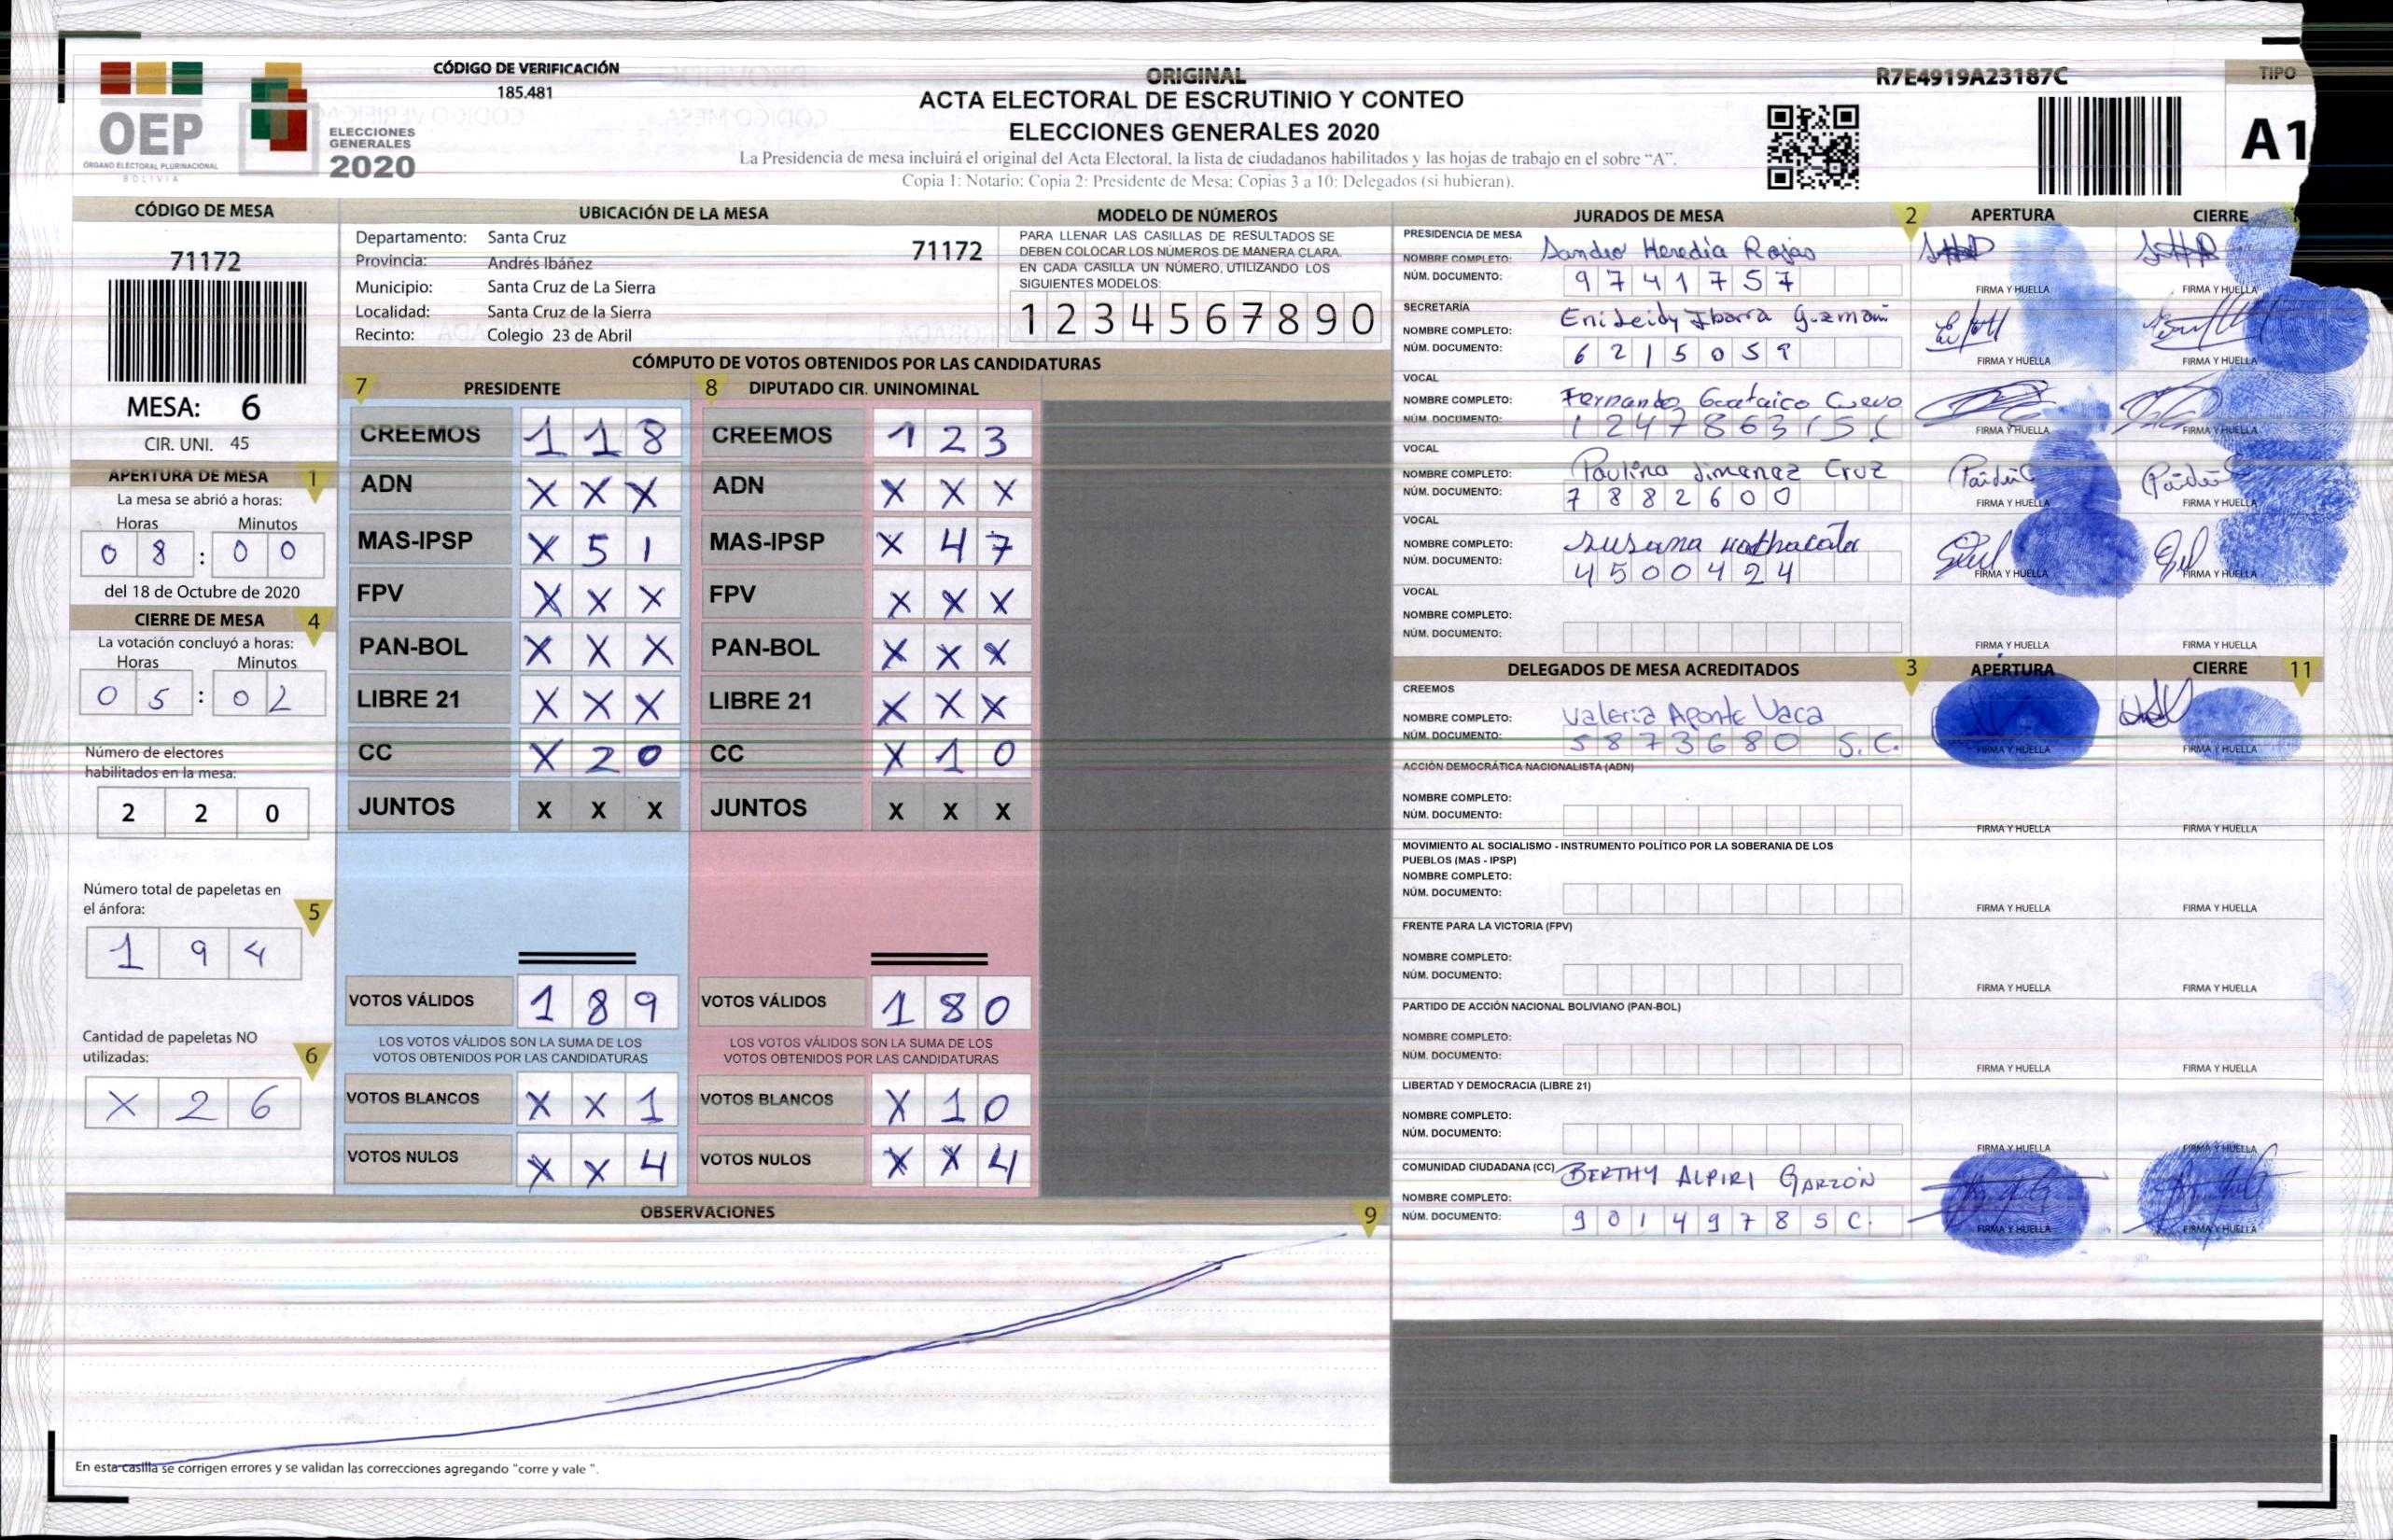 OEP
ÓRGANO ELECTORAL PLURINACIONAL
BOLIVIA
ELECCIONES
GENERALES
2020
CÓDIGO DE VERIFICACIÓN
185.481
ORIGINAL
ACTA ELECTORAL DE ESCRUTINIO Y CONTEO
ELECCIONES GENERALES 2020
La Presidencia de mesa incluirá el original del Acta Electoral, la lista de ciudadanos habilitados y las hojas de trabajo en el sobre “A”.
Copia 1: Notario: Copia 2: Presidente de Mesa: Copias 3 a 10: Delegados (si hubieran).
R7E4919A23187C
TIPO
A1
CÓDIGO DE MESA
71172
MESA: 6
CIR. UNI. 45
APERTURA DE MESA 1
La mesa se abrió a horas:
Horas Minutos
0 8 : 0 0
del 18 de Octubre de 2020
CIERRE DE MESA 4
La votación concluyó a horas:
Horas Minutos
0 5 : 0 2
Número de electores
habilitados en la mesa:
2 2 0
Número total de papeletas en
el ánfora: 5
1 9 4
Cantidad de papeletas NO
utilizadas: 6
X 2 6
UBICACIÓN DE LA MESA
Departamento: Santa Cruz
Provincia: Andrés Ibáñez
Municipio: Santa Cruz de La Sierra
Localidad: Santa Cruz de la Sierra
Recinto: Colegio 23 de Abril
71172
MODELO DE NÚMEROS
PARA LLENAR LAS CASILLAS DE RESULTADOS SE
DEBEN COLOCAR LOS NÚMEROS DE MANERA CLARA.
EN CADA CASILLA UN NÚMERO, UTILIZANDO LOS
SIGUIENTES MODELOS:
1 2 3 4 5 6 7 8 9 0
CÓMPUTO DE VOTOS OBTENIDOS POR LAS CANDIDATURAS
7 PRESIDENTE 8 DIPUTADO CIR. UNINOMINAL
CREEMOS 1 1 8 CREEMOS 1 2 3
ADN X X X ADN X X X
MAS-IPSP X 5 1 MAS-IPSP X 4 7
FPV X X X FPV X X X
PAN-BOL X X X PAN-BOL X X X
LIBRE 21 X X X LIBRE 21 X X X
CC X 2 0 CC X 1 0
JUNTOS X X X JUNTOS X X X
VOTOS VÁLIDOS 1 8 9 VOTOS VÁLIDOS 1 8 0
LOS VOTOS VÁLIDOS SON LA SUMA DE LOS LOS VOTOS VÁLIDOS SON LA SUMA DE LOS
VOTOS OBTENIDOS POR LAS CANDIDATURAS VOTOS OBTENIDOS POR LAS CANDIDATURAS
VOTOS BLANCOS X X 1 VOTOS BLANCOS X 1 0
VOTOS NULOS X X 4 VOTOS NULOS X X 4
OBSERVACIONES 9
En esta casilla se corrigen errores y se validan las correcciones agregando "corre y vale ".
JURADOS DE MESA 2 APERTURA CIERRE
PRESIDENCIA DE MESA
NOMBRE COMPLETO: Sandro Heredia Rojas
NÚM. DOCUMENTO: 9 7 4 1 7 5 7
FIRMA Y HUELLA FIRMA Y HUELLA
SECRETARÍA
NOMBRE COMPLETO: Enileidy Ibarra Guzman
NÚM. DOCUMENTO: 6 2 1 5 0 5 9
FIRMA Y HUELLA FIRMA Y HUELLA
VOCAL
NOMBRE COMPLETO: Fernando Cuevo
NÚM. DOCUMENTO:
FIRMA Y HUELLA FIRMA Y HUELLA
VOCAL
NOMBRE COMPLETO: Paulina Jimenez Cruz
NÚM. DOCUMENTO: 7 8 8 2 6 0 0
FIRMA Y HUELLA FIRMA Y HUELLA
VOCAL
NOMBRE COMPLETO: Susana
NÚM. DOCUMENTO: 4 5 0 0 4 2 4
FIRMA Y HUELLA FIRMA Y HUELLA
VOCAL
NOMBRE COMPLETO:
NÚM. DOCUMENTO:
FIRMA Y HUELLA FIRMA Y HUELLA
DELEGADOS DE MESA ACREDITADOS 3 APERTURA CIERRE 11
CREEMOS
NOMBRE COMPLETO: Valeria Aponte Vaca
NÚM. DOCUMENTO: 5 8 7 3 6 8 0 S.C.
FIRMA Y HUELLA FIRMA Y HUELLA
ACCIÓN DEMOCRÁTICA NACIONALISTA (ADN)
NOMBRE COMPLETO:
NÚM. DOCUMENTO:
FIRMA Y HUELLA FIRMA Y HUELLA
MOVIMIENTO AL SOCIALISMO - INSTRUMENTO POLÍTICO POR LA SOBERANIA DE LOS
PUEBLOS (MAS - IPSP)
NOMBRE COMPLETO:
NÚM. DOCUMENTO:
FIRMA Y HUELLA FIRMA Y HUELLA
FRENTE PARA LA VICTORIA (FPV)
NOMBRE COMPLETO:
NÚM. DOCUMENTO:
FIRMA Y HUELLA FIRMA Y HUELLA
PARTIDO DE ACCIÓN NACIONAL BOLIVIANO (PAN-BOL)
NOMBRE COMPLETO:
NÚM. DOCUMENTO:
FIRMA Y HUELLA FIRMA Y HUELLA
LIBERTAD Y DEMOCRACIA (LIBRE 21)
NOMBRE COMPLETO:
NÚM. DOCUMENTO:
FIRMA Y HUELLA FIRMA Y HUELLA
COMUNIDAD CIUDADANA (CC)
NOMBRE COMPLETO: BERTHY ALPIRI GARZÓN
NÚM. DOCUMENTO: 9 0 1 4 9 7 8 S C.
FIRMA Y HUELLA FIRMA Y HUELLA